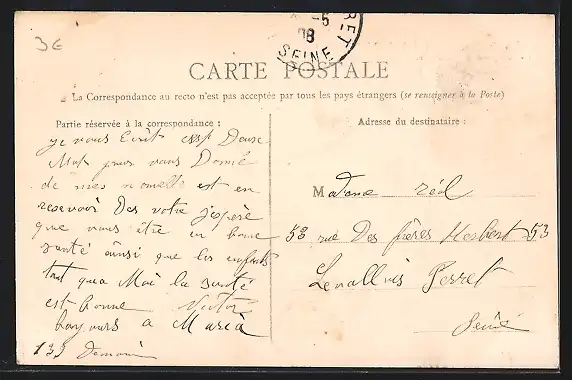 3€
-5
08
RET
SEINE
CARTE POSTALE
La Correspondance au recto n'est pas acceptée par tous les pays étrangers (se renseigner à la Poste)
Partie réservée à la correspondance :
je vous Ecrit cest Deux
Mot pour vous Donné
de mes nouvelle est en
resevoir Des votre j'espère
que vous être en bonne
santé ainsi que les enfants
tant qua Moi la santé
est bonne Victor
toujours a Maria
133
Adresse du destinataire :
Madame réol
53 rue Des frères Herbert 53
Levallois Perret
Seine